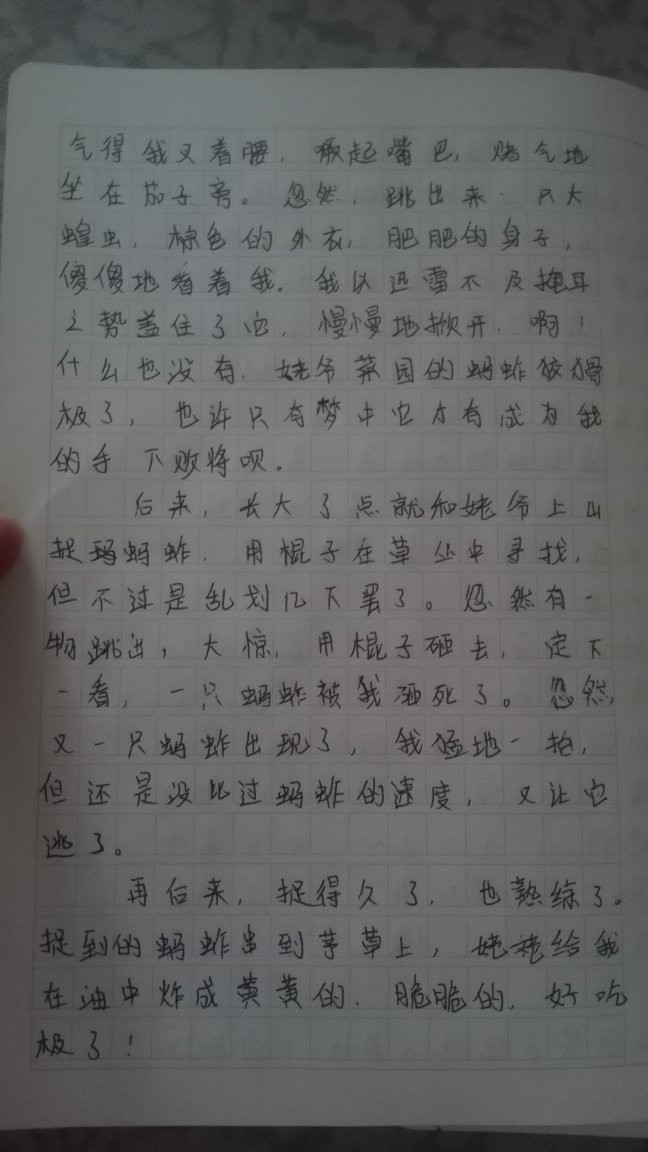 气得我叉着腰，撅起嘴巴，赌气地
坐在茄子旁。忽然，跳出来一只大
蝗虫，棕色的外衣，肥肥的身子，
傻傻地看着我。我以迅雷不及掩耳
之势盖住了它，慢慢地掀开，啊！
什么也没有，姥爷菜园的蚂蚱狡猾
极了，也许只有梦中它才有成为我
的手下败将呗。
后来，长大了点就和姥爷上山
捉蚂蚂蚱，用棍子在草丛中寻找，
但不过是乱划几下罢了。忽然有一
物跳出，大惊，用棍子砸去，定下
一看，一只蚂蚱被我砸死了。忽然，
又一只蚂蚱出现了，我猛地一拍，
但还是没比过蚂蚱的速度，又让它
逃了。
再后来，捉得久了，也熟练了。
捉到的蚂蚱串到茅草上，姥姥给我
在油中炸成黄黄的，脆脆的，好吃
极了！